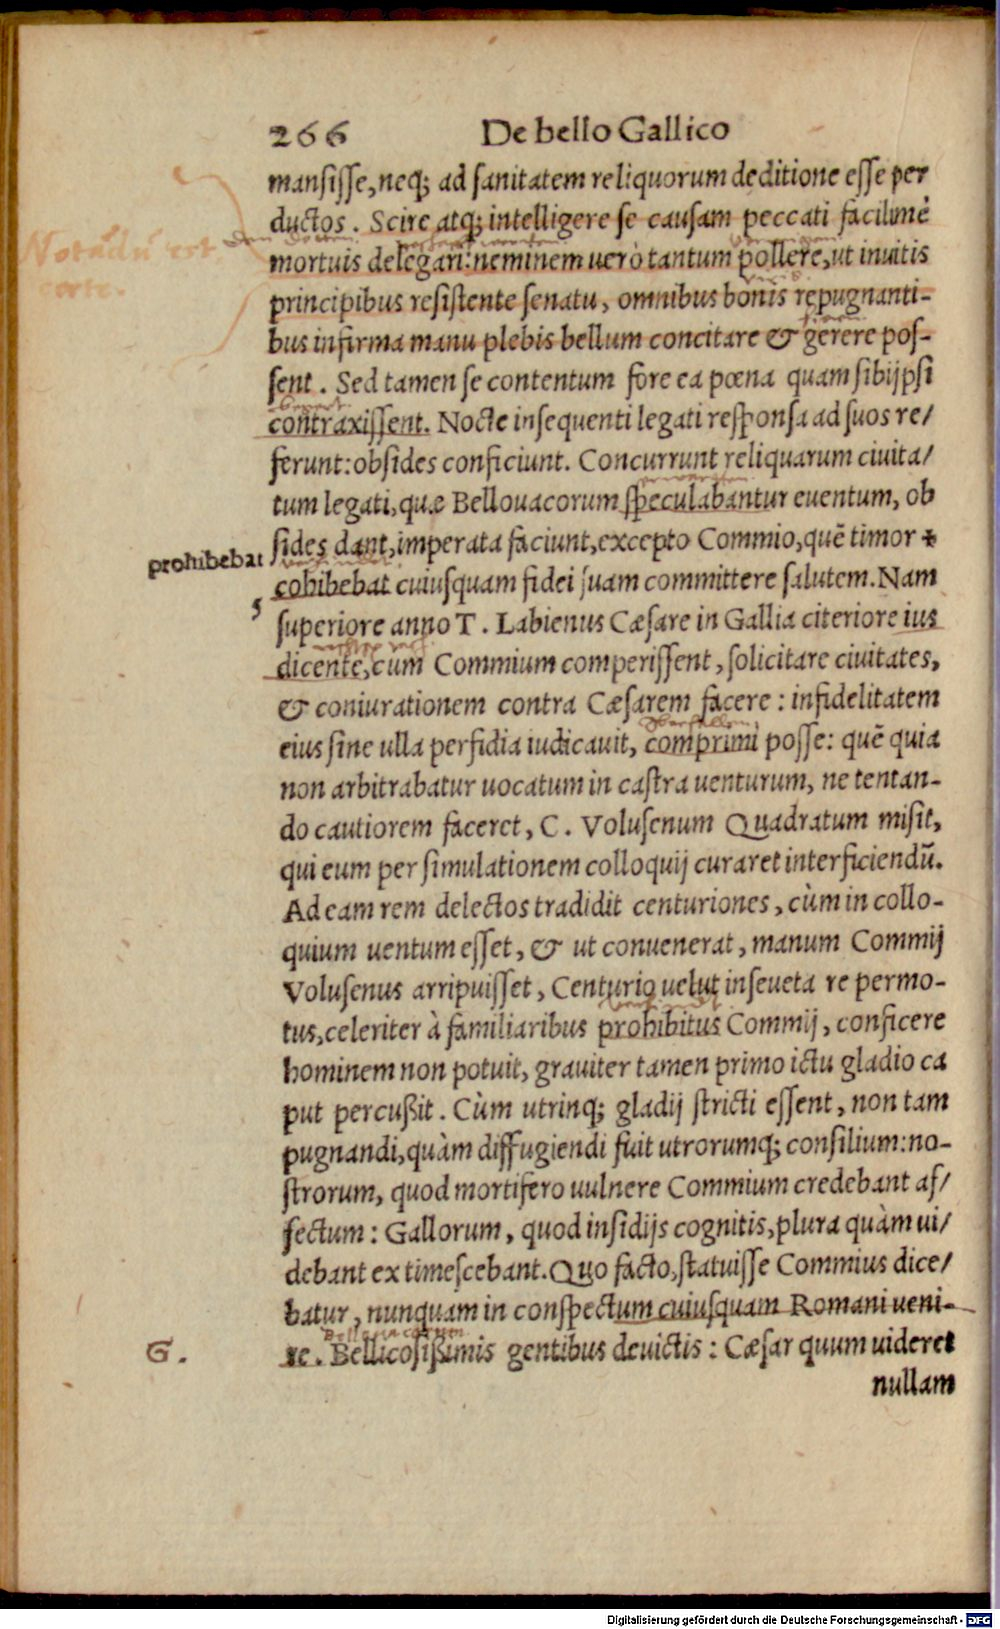 266 De bello Gallico
mansisse, neq; ad sanitatem reliquorum deditione esse per
ductos. Scire atq; intelligere se causam peccati facilimè
Notādū est
den doten
mortuis delegari: neminem uerò tantum pollere, ut inuitis
certe.
principibus resistente senatu, omnibus bonis repugnanti-
bus infirma manu plebis bellum concitare & gerere pos-
sent. Sed tamen se contentum fore ea pœna quam sibijpsi
contraxissent. Nocte insequenti legati responsa ad suos re/
ferunt: obsides conficiunt. Concurrunt reliquarum ciuita/
tum legati, quæ Bellouacorum speculabantur euentum, ob
sides dant, imperata faciunt, excepto Commio, quē timor *
prohibebat
cohibebat cuiusquam fidei suam committere salutem. Nam
5
superiore anno T. Labienus Cæsare in Gallia citeriore ius
dicente, cum Commium comperissent, solicitare ciuitates,
& coniurationem contra Cæsarem facere: infidelitatem
eius sine ulla perfidia iudicauit, comprimi posse: quē quia
non arbitrabatur uocatum in castra uenturum, ne tentan-
do cautiorem faceret, C. Volusenum Quadratum misit,
qui eum per simulationem colloquij curaret interficiendū.
Ad eam rem delectos tradidit centuriones, cùm in collo-
quium uentum esset, & ut conuenerat, manum Commij
Volusenus arripuisset, Centurio uelut inseueta re permo-
tus, celeriter à familiaribus prohibitus Commij, conficere
hominem non potuit, grauiter tamen primo ictu gladio ca
put percußit. Cùm utrinq; gladij stricti essent, non tam
pugnandi, quàm diffugiendi fuit utrorumq; consilium: no-
strorum, quod mortifero uulnere Commium credebant af/
fectum: Gallorum, quod insidijs cognitis, plura quàm ui/
debant extimescebant. Quo facto, statuisse Commius dice/
batur, nunquam in conspectum cuiusquam Romani ueni-
Bellouacorum
G.
re. Bellicosißimis gentibus deuictis: Cæsar quum uideret
nullam
Digitalisierung gefördert durch die Deutsche Forschungsgemeinschaft - DFG